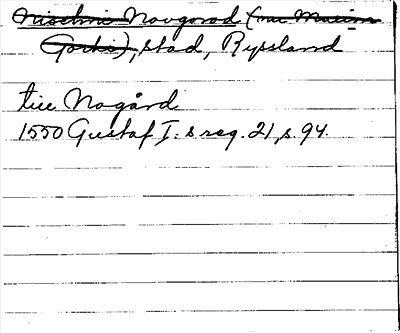 Nischni Novgorod (nu Maxim
Gorki), stad, Ryssland
tiil Nogård
1550 Gustaf I:s reg. 21, s. 94.